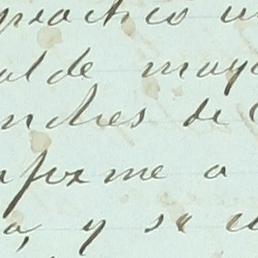 practico
al de mayo
ndres de
nforme a
a, y se